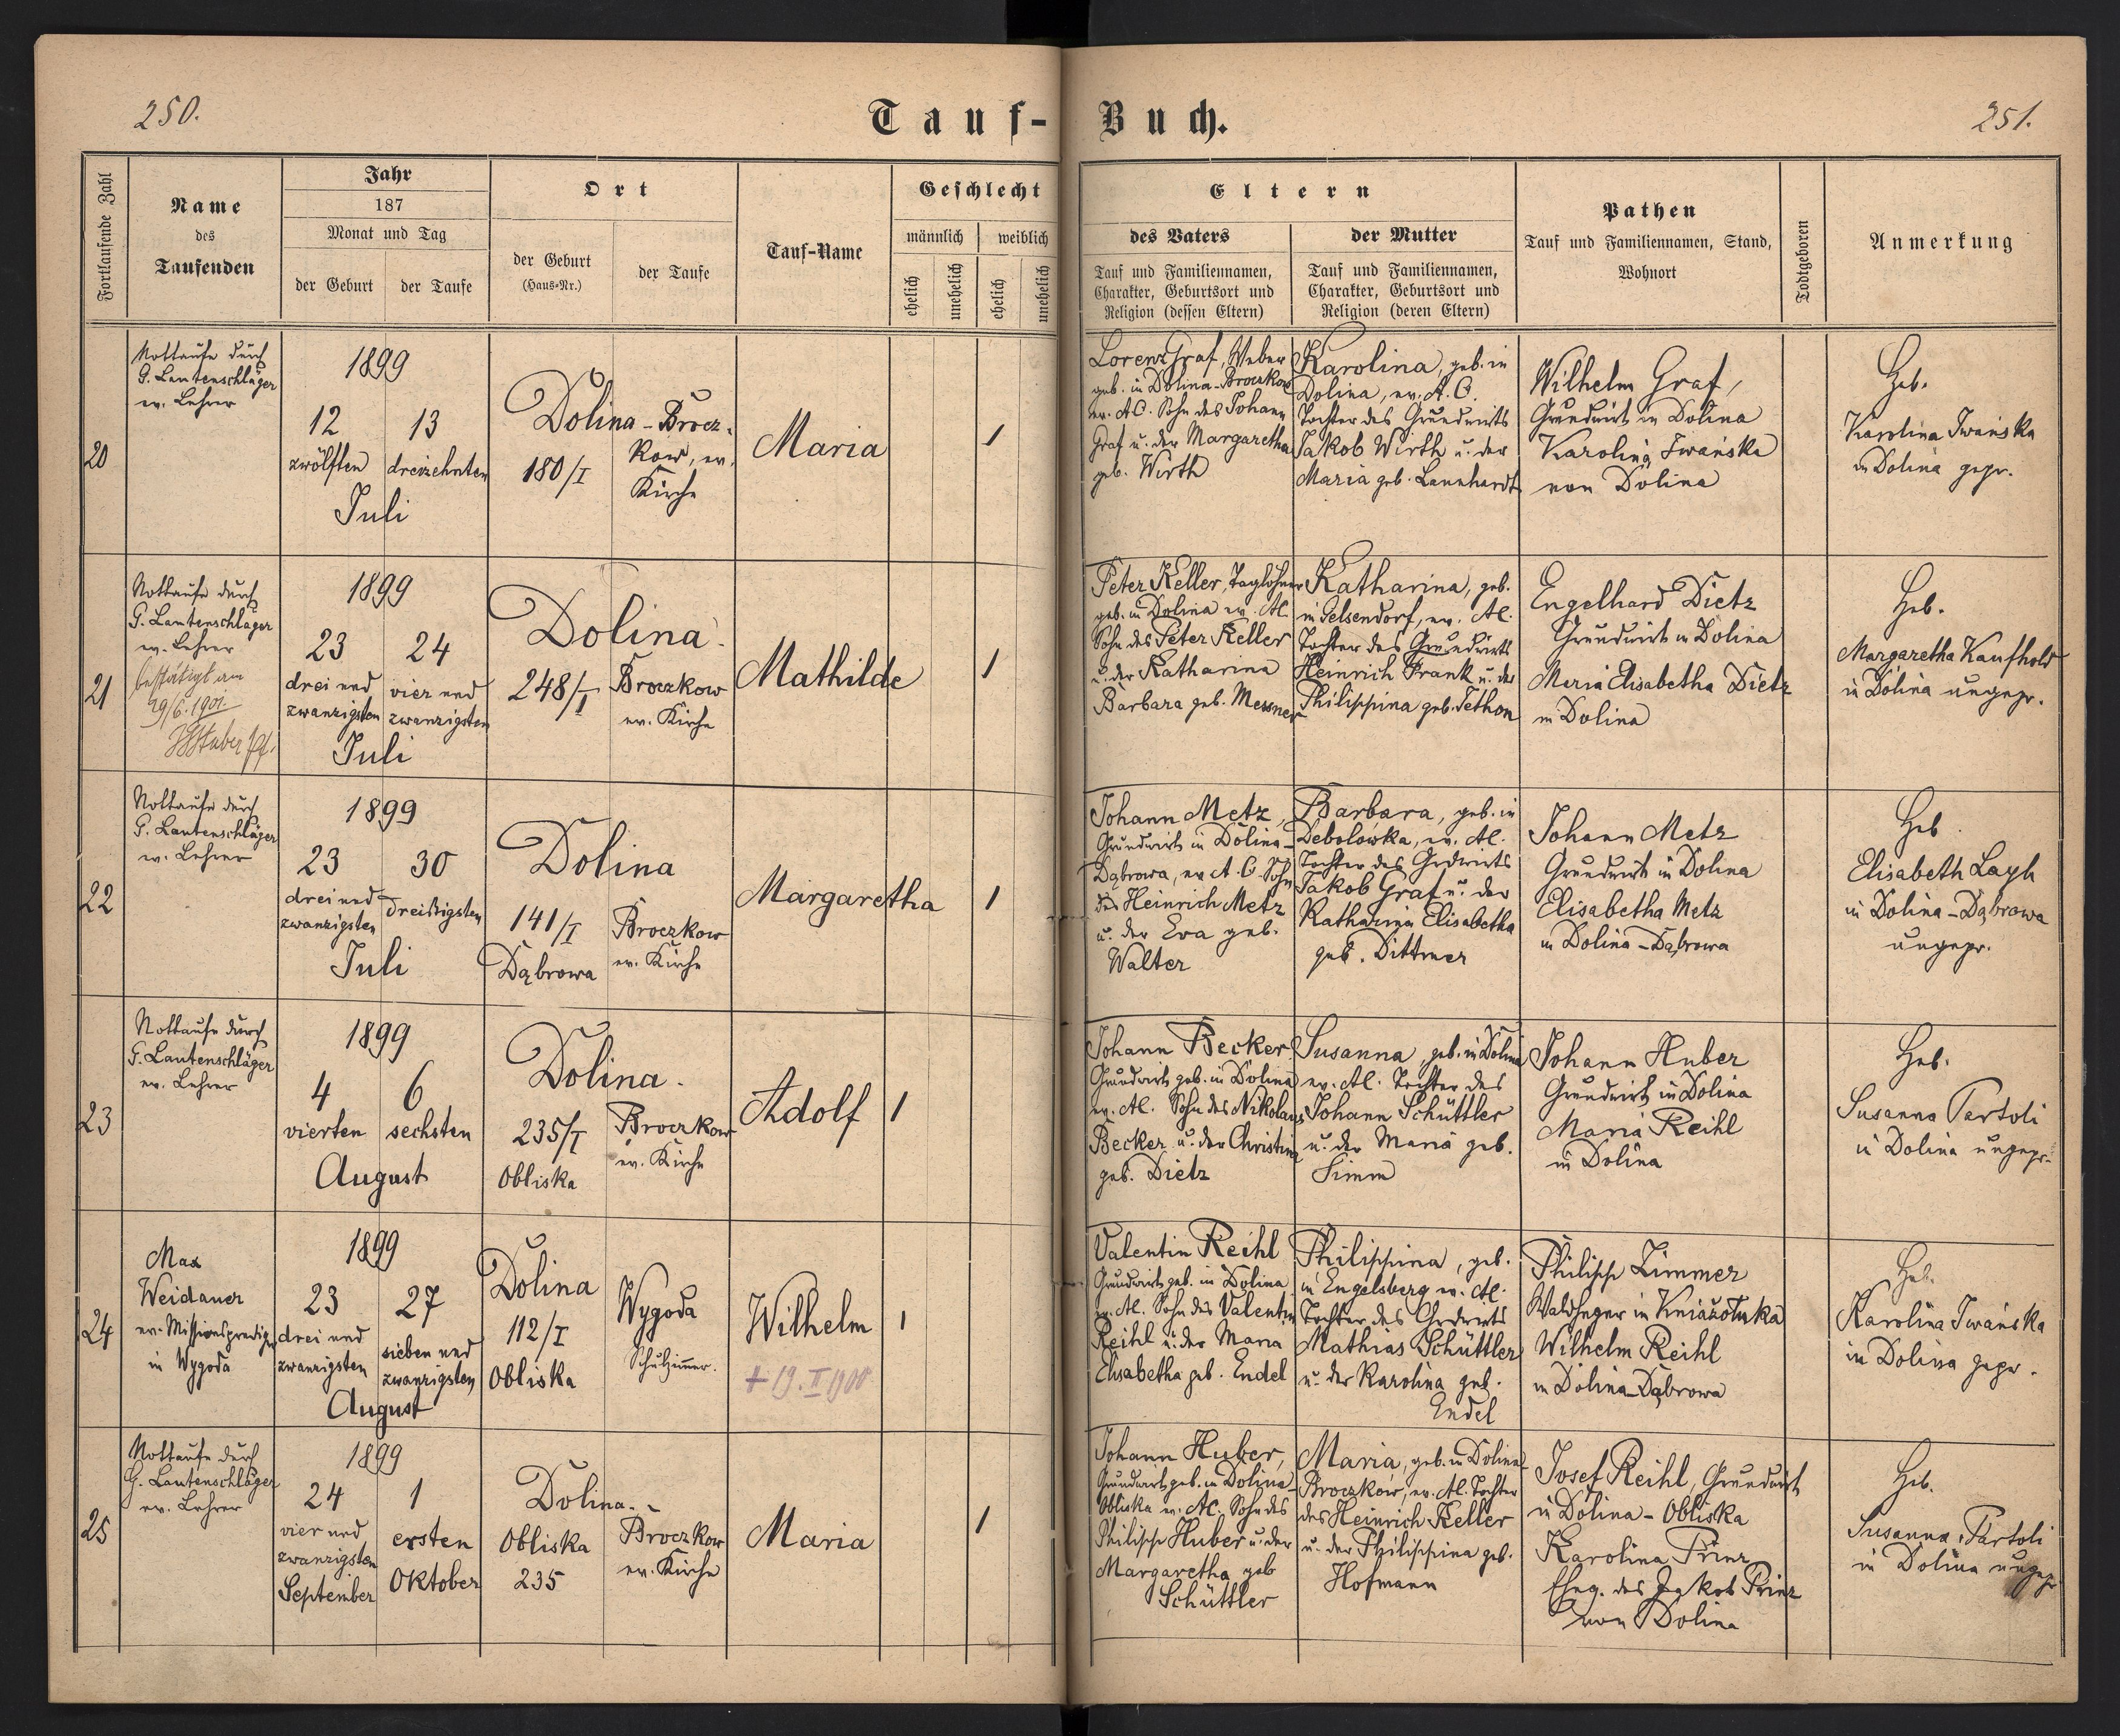 250.
Tauf-Buch.
251.
Fortlaufende Zahl
Name
des
Taufenden
Jahr
187
Monat und Tag
der Geburt
der Taufe
Ort
der Geburt
(Haus-Nr.)
der Taufe
Tauf-Name
Geschlecht
männlich
weiblich
ehelich
unehelich
ehelich
unehelich
Eltern
des Vaters
Tauf und Familiennamen,
Charakter, Geburtsort und
Religion (dessen Eltern)
der Mutter
Tauf und Familiennamen,
Charakter, Geburtsort und
Religion (deren Eltern)
Pathen
Tauf und Familiennamen, Stand,
Wohnort
Todtgeboren
Anmerkung
20
Nottaufe durch
G. Lautenschläger
ev. Lehrer
1899
12
zwölften
13
dreizehnten
Juli
Dolina-Brocz-
180/I
kow, ev.
Kirche
Maria
1
Lorenz Graf, Weber
geb. in Dolina-Broczkow
ev. A.C. Sohn des Johann
Graf u. der Margaretha
geb. Wirth
Karolina, geb. in
Dolina, ev. A. C.
Tochter des Grundwirts
Jakob Wirth u. der
Maria geb. Lannhardt
Wilhelm Graf,
Grundwirt in Dolina
Karolina Iwańska
von Dolina
Heb.
Karolina Iwańska
in Dolina gepr.
21
Nottaufe durch
G. Lautenschläger
ev. Lehrer
bestätigt am
29/6. 1901.
1899
23
drei und
zwanzigsten
24
vier und
zwanzigsten
Juli
Dolina
248/I
Broczkow
ev. Kirche
Mathilde
1
Peter Keller, Taglöhner
geb. in Dolina ev. AC.
Sohn des Peter Keller
u. der Katharina
Barbara geb. Messner
Katharina, geb.
in Gelsendorf, ev. AC.
Tochter des Grundwirts
Heinrich Frank u. der
Philippina geb. Tethon
Engelhard Dietz
Grundwirt in Dolina
Maria Elisabetha Dietz
in Dolina
Heb.
Margaretha Kaufhold
in Dolina ungepr.
22
Nottaufe durch
G. Lautenschläger
ev. Lehrer
1899
23
drei und
zwanzigsten
30
dreißigsten
Juli
Dolina
141/I
Dąbrowa
Broczkow
ev. Kirche
Margaretha
1
Johann Metz,
Grundwirt in Dolina-
Dąbrowa, ev. A. C. Sohn
des Heinrich Metz
u. der Eva geb.
Walter
Barbara, geb. in
Debolówka, ev. AC.
Tochter des Grdwirts
Jakob Graf u. der
Katharina Elisabetha
geb. Dittmer
Johann Metz
Grundwirt in Dolina
Elisabetha Metz
in Dolina-Dąbrowa
Heb.
Elisabeth Layh
in Dolina-Dąbrowa
ungepr.
23
Nottaufe durch
G. Lautenschläger
ev. Lehrer
1899
4
vierten
6
sechsten
August
Dolina.
235/I
Obliska
Broczkow
ev. Kirche
Adolf
1
Johann Becker
Grundwirt geb. in Dolina
ev. AC. Sohn des Nikolaus
Becker u. der Christina
geb. Dietz
Susanna, geb. in Dolina
ev. AC. Tochter des
Johann Schüttler
u. der Maria geb.
Simm
Johann Huber
Grundwirt in Dolina
Maria Reihl
in Dolina
Heb.
Susanna Partoli
in Dolina ungepr.
24
Max
Weidauer
ev. Missionsprediger
in Wygoda
1899
23
drei und
zwanzigsten
27
sieben und
zwanzigsten
August
Dolina
112/I
Obliska
Wygoda
Schulzimmer.
Wilhelm
+ 19. I 1900
1
Valentin Reihl
Grundwirt geb. in Dolina
ev. AC. Sohn des Valentin
Reihl u. der Maria
Elisabetha geb. Endel
Philippina, geb.
in Engelsberg ev. AC.
Tochter des Grdwirts
Mathias Schüttler
u. der Karolina geb.
Endel
Philipp Zimmer
Waldheger in Kniażołuka
Wilhelm Reihl
in Dolina-Dąbrowa
Heb.
Karolina Iwańska
in Dolina gepr.
25
Nottaufe durch
G. Lautenschläger
ev. Lehrer
1899
24
vier und
zwanzigsten
September
1
ersten
Oktober
Dolina-
Obliska
235
Broczkow
ev. Kirche
Maria
1
Johann Huber,
Grundwirt geb. in Dolina-
Obliska ev. AC. Sohn des
Philipp Huber u. der
Margaretha geb
Schüttler
Maria, geb. in Dolina-
Broczków, ev. AC. Tochter
des Heinrich Keller
u. der Philippina geb.
Hofmann
Josef Reihl, Grundwirt
in Dolina-Obliska
Karolina Prinz
Eheg. des Jakob Prinz
von Dolina
Heb.
Susanna Partoli
in Dolina ungepr